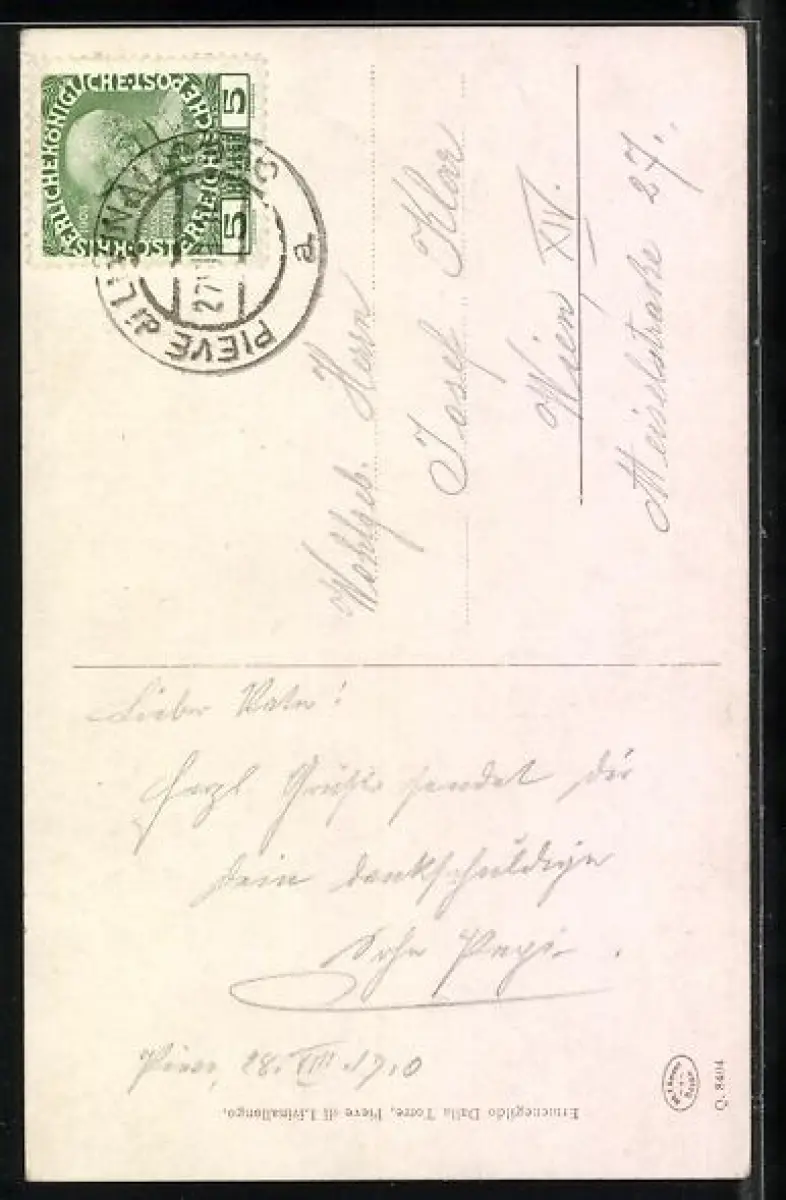 KAISERLICHE KÖNIGLICHE ÖSTERREICHISCHE POST
5 5
PIEVE di LIVINALLONGO
27
a
Wohlgeb. Herrn
Josef Klar
Wien, XIV.
Meiselstraße 27.
Lieber Vater!
Herzl Grüße sendet Dir
Dein dankschuldiger
Sohn Pepi.
Pieve, 28. VIII. 1910
Ermenegildo Dalla Torre, Pieve di Livinallongo.
Q. 8404